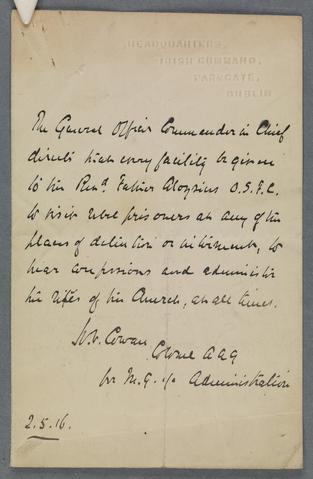 HEADQUARTERS,
IRISH COMMAND,
PARKGATE,
DUBLIN
The General Officer Commander in Chief
directs that every facility be given
to the Revd. Father Aloysius O.S.F.C.
to visit rebel prisoners at any of the
places of detention or internment, to
hear confessions and administer
the rites of his Church, at all times.
H.V. Cowan
Colonel A A G
for M.G. i/c Administration
2.5.16.